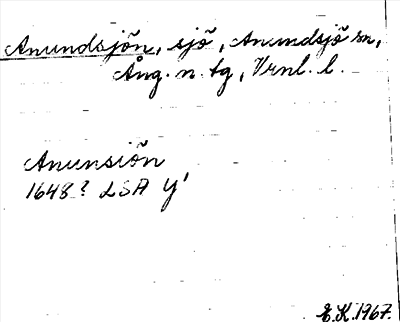 Anundsjön, sjö, Anundsjö sn,
Ång. n. tg, Vrnl. l.
Anunsiön
1648? LSA Y'
E.K. 1967.